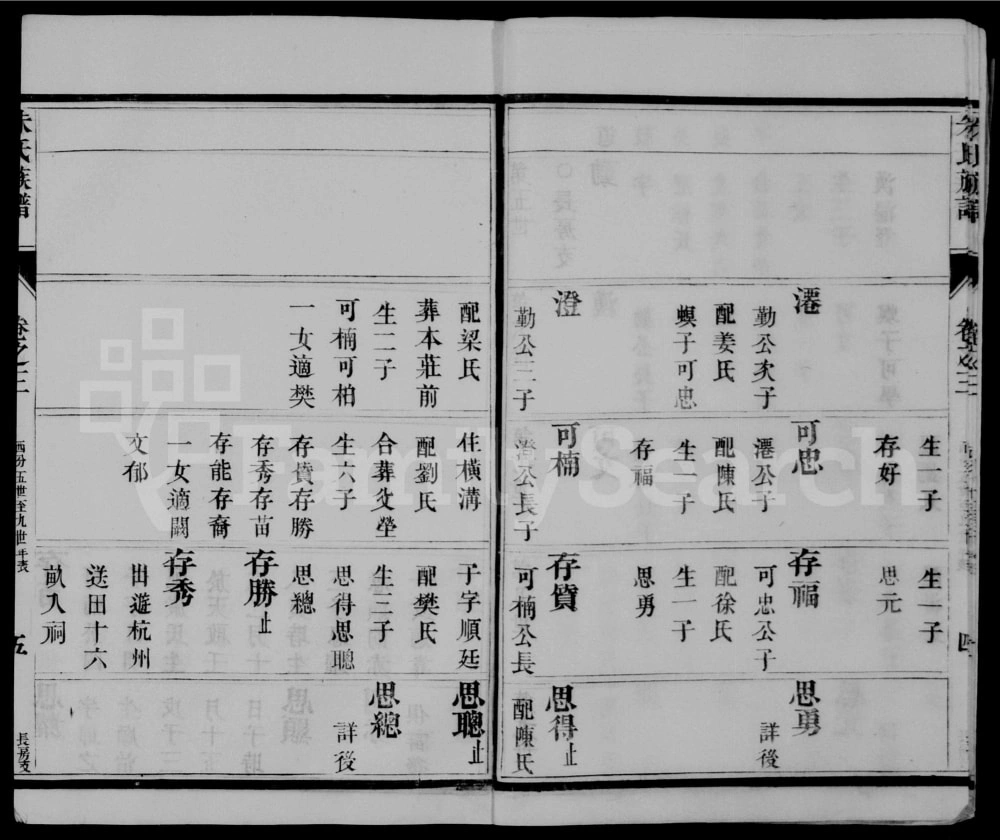 朱氏族譜
卷之三
生一子
存好
生一子
思元
澐
勤公次子
配姜氏
螟子可忠
可忠
澐公子
配陳氏
生一子
存福
存福
可忠公子
配徐氏
生一子
思勇
思勇
詳後
澄
勤公三子
可楠
澄公長子
存賁
可楠公長
思得止
配陳氏
配梁氏
葬本莊前
生二子
可楠可柏
一女適樊
住橫溝
配劉氏
合葬父塋
生六子
存賁存勝
存秀存苗
存能存裔
一女適闞
文郁
子字順廷
配樊氏
生三子
思得思聰
思總
存勝止
存秀
出遊杭州
送田十六
畝入祠
思聰止
思總
詳後
朱氏族譜
卷之三
五世至九世年表
五
長房支
FamilySearch